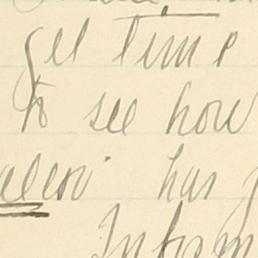 get time
to see how
has
Inform